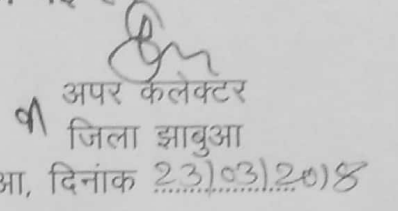 अपर कलेक्टर
जिला झाबुआ
आ, दिनांक 23/03/2018